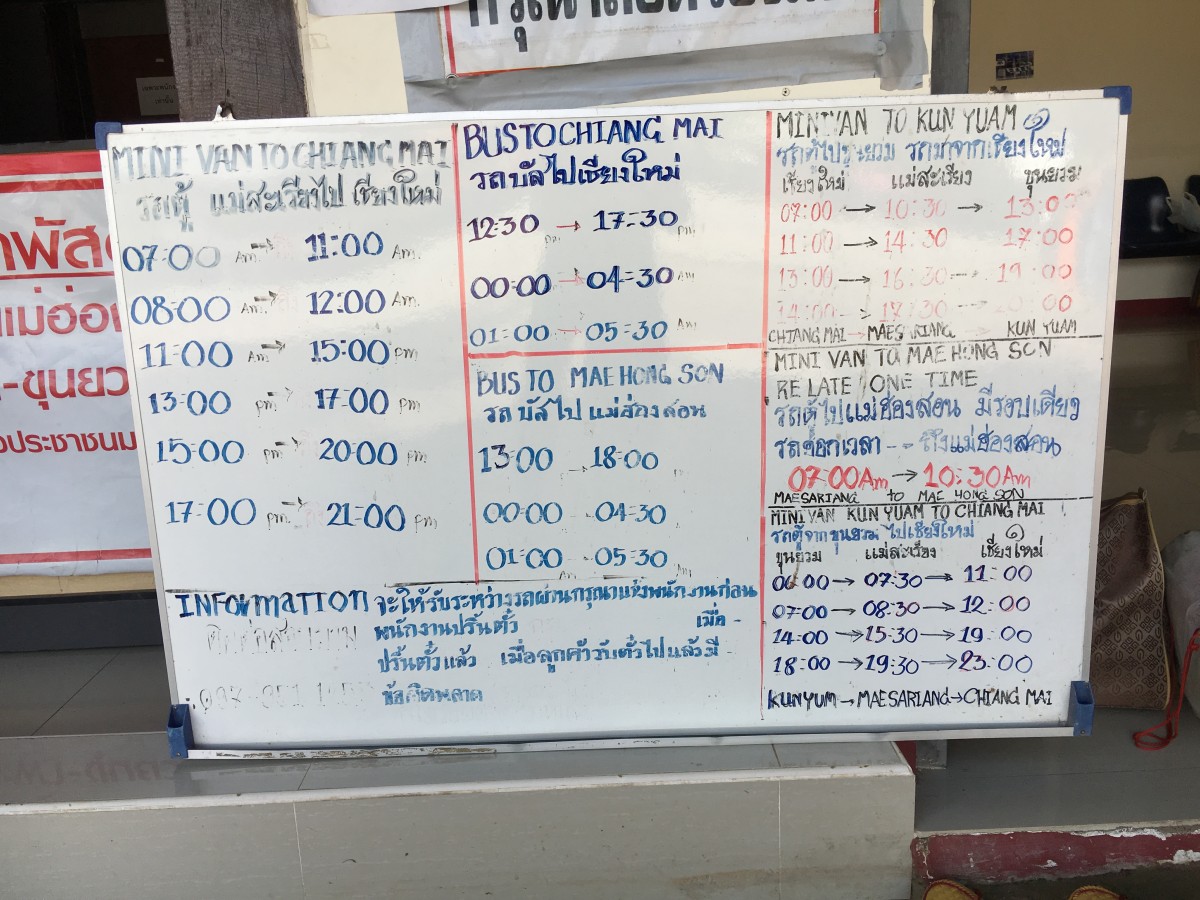 MINI VAN TO CHIANG MAI
รถตู้ แม่สะเรียงไป เชียงใหม่
07:00 Am. → 11:00 Am.
08:00 Am. → 12:00 Am.
11:00 Am → 15:00 pm
13:00 pm → 17:00 pm
15:00 pm → 20:00 pm
17:00 pm → 21:00 pm
BUS TO CHIANG MAI
รถบัสไปเชียงใหม่
12:30 pm → 17:30 pm
00:00 → 04:30 Am
01:00 → 05:30 Am
BUS TO MAE HONG SON
รถบัสไป แม่ฮ่องสอน
13:00 → 18:00
00:00 - 04:30
01:00 - 05:30
INFORMATION จะให้รับระหว่างรถผ่านกรุณาแจ้งพนักงานก่อน
พนักงานปริ้นตั๋ว เมื่อ -
ปริ้นตั๋วแล้ว เมื่อลูกค้ารับตั๋วไปแล้วมี
ข้อผิดพลาด
MINIVAN TO KUN YUAM
รถตู้ไปขุนยวม รถมาจากเชียงใหม่
เชียงใหม่ แม่สะเรียง ขุนยวม
07:00 → 10:30 → 13:00
11:00 → 14:30 17:00
13:00 → 16:30 → 19:00
14:00 → 17:30 00
CHIANG MAI → MAESARIANG KUN YUAM
MINI VAN TO MAE HONG SON
RELATE ONE TIME
รถตู้ไปแม่ฮ่องสอน มีรอบเดียว
ถึงแม่ฮ่องสอน
07:00Am → 10:30Am
MAESARIANG to MAE HONG SON
MINIVAN KUN YUAM TO CHIANG MAI
รถตู้จากขุนยวม ไปเชียงใหม่
ขุนยวม แม่สะเรียง เชียงใหม่
06:00 → 07:30 → 11:00
07:00 → 08:30 → 12:00
14:00 → 15:30 → 19:00
18:00 → 19:30 → 23:00
KUNYUM → MAESARIANG → CHIANG MAI